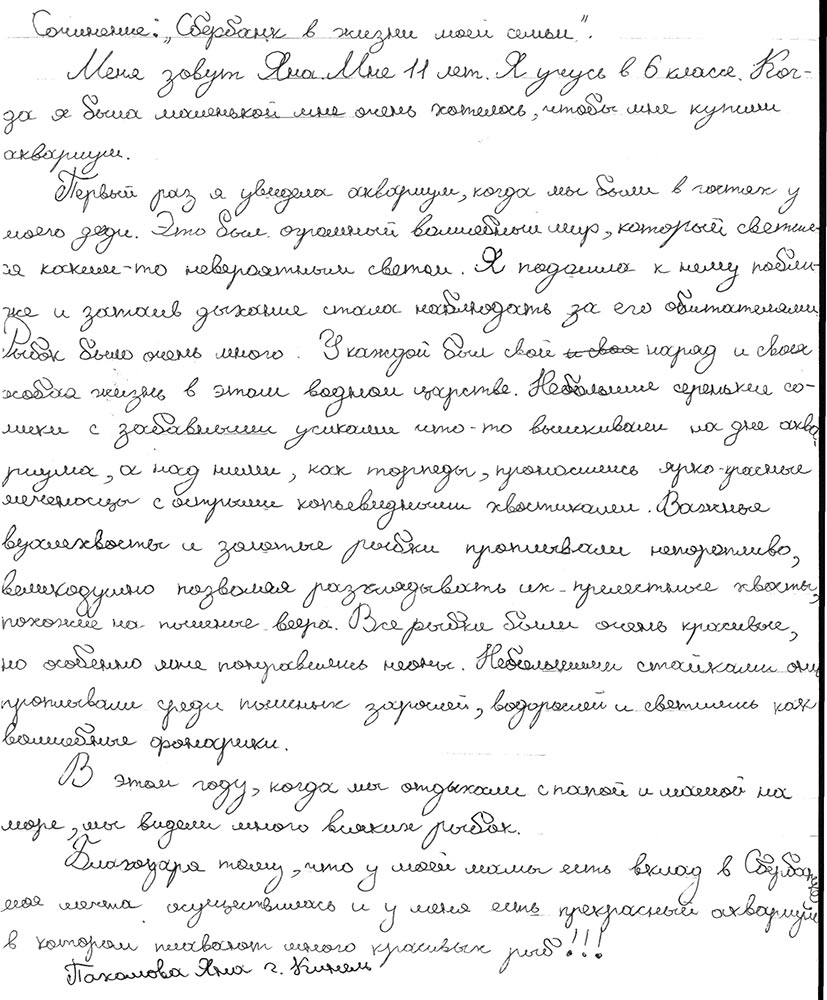 Сочинение: „Сбербанк в жизни моей семьи".
Меня зовут Яна. Мне 11 лет. Я учусь в 6 классе. Ког-
да я была маленькой мне очень хотелось, чтобы мне купили
аквариум.
Первый раз я увидела аквариум, когда мы были в гостях у
моего дяди. Это был огромный волшебный мир, который светил-
ся каким-то невероятным светом. Я подошла к нему побли-
же и затаив дыхание стала наблюдать за его обитателями.
Рыбок было очень много. У каждой был свой наряд и своя
особая жизнь в этом водном царстве. Небольшие серенькие со-
мики с забавными усиками что-то выискивали на дне аква-
риума, а над ними, как торпеды, проносились ярко-красные
меченосцы с острыми копьевидными хвостиками. Важные
вуалехвосты и золотые рыбки проплывали неторопливо,
великодушно позволяя разглядывать их прелестные хвосты,
похожие на пышные веера. Все рыбки были очень красивые,
но особенно мне понравились неоны. Небольшими стайками они
проплывали среди пышных зарослей, водорослей и светились как
волшебные фонарики.
В этом году, когда мы отдыхали с папой и мамой на
море, мы видели много всяких рыбок.
Благодаря тому, что у моей мамы есть вклад в Сбербанке
моя мечта осуществилась и у меня есть прекрасный аквариум
в котором плавают много красивых рыб!!!
Пахомова Яна г. Кинель